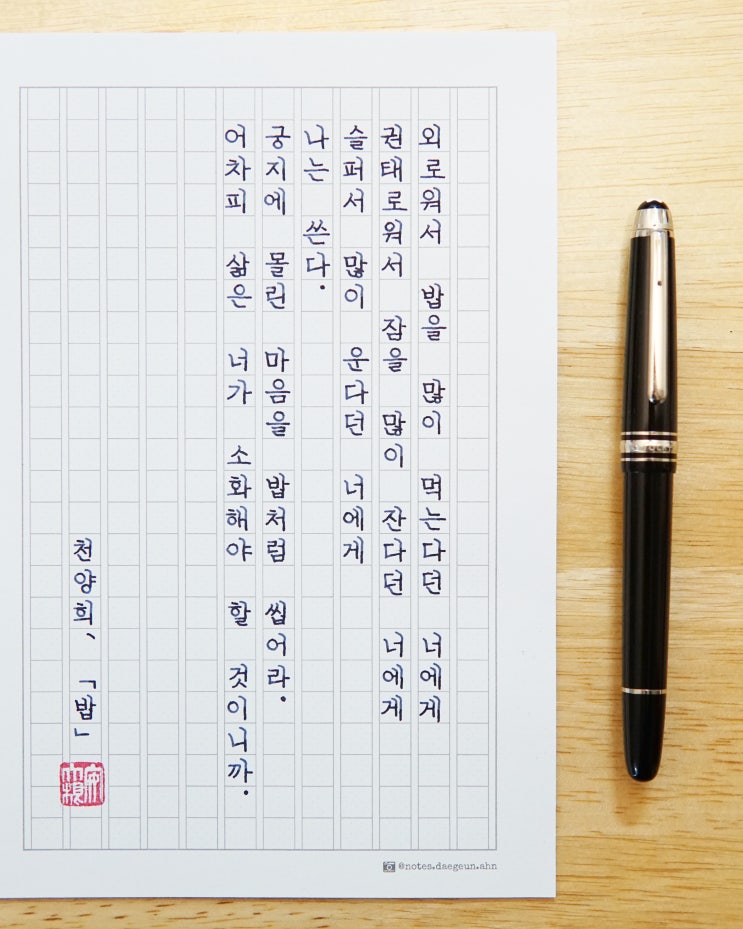 외로워서 밥을 많이 먹는다던 너에게
권태로워서 잠을 많이 잔다던 너에게
슬퍼서 많이 운다던 너에게
나는 쓴다.
궁지에 몰린 마음을 밥처럼 씹어라.
어차피 삶은 너가 소화해야 할 것이니까.
천양희、「밥」
@notes.daegeun.ahn